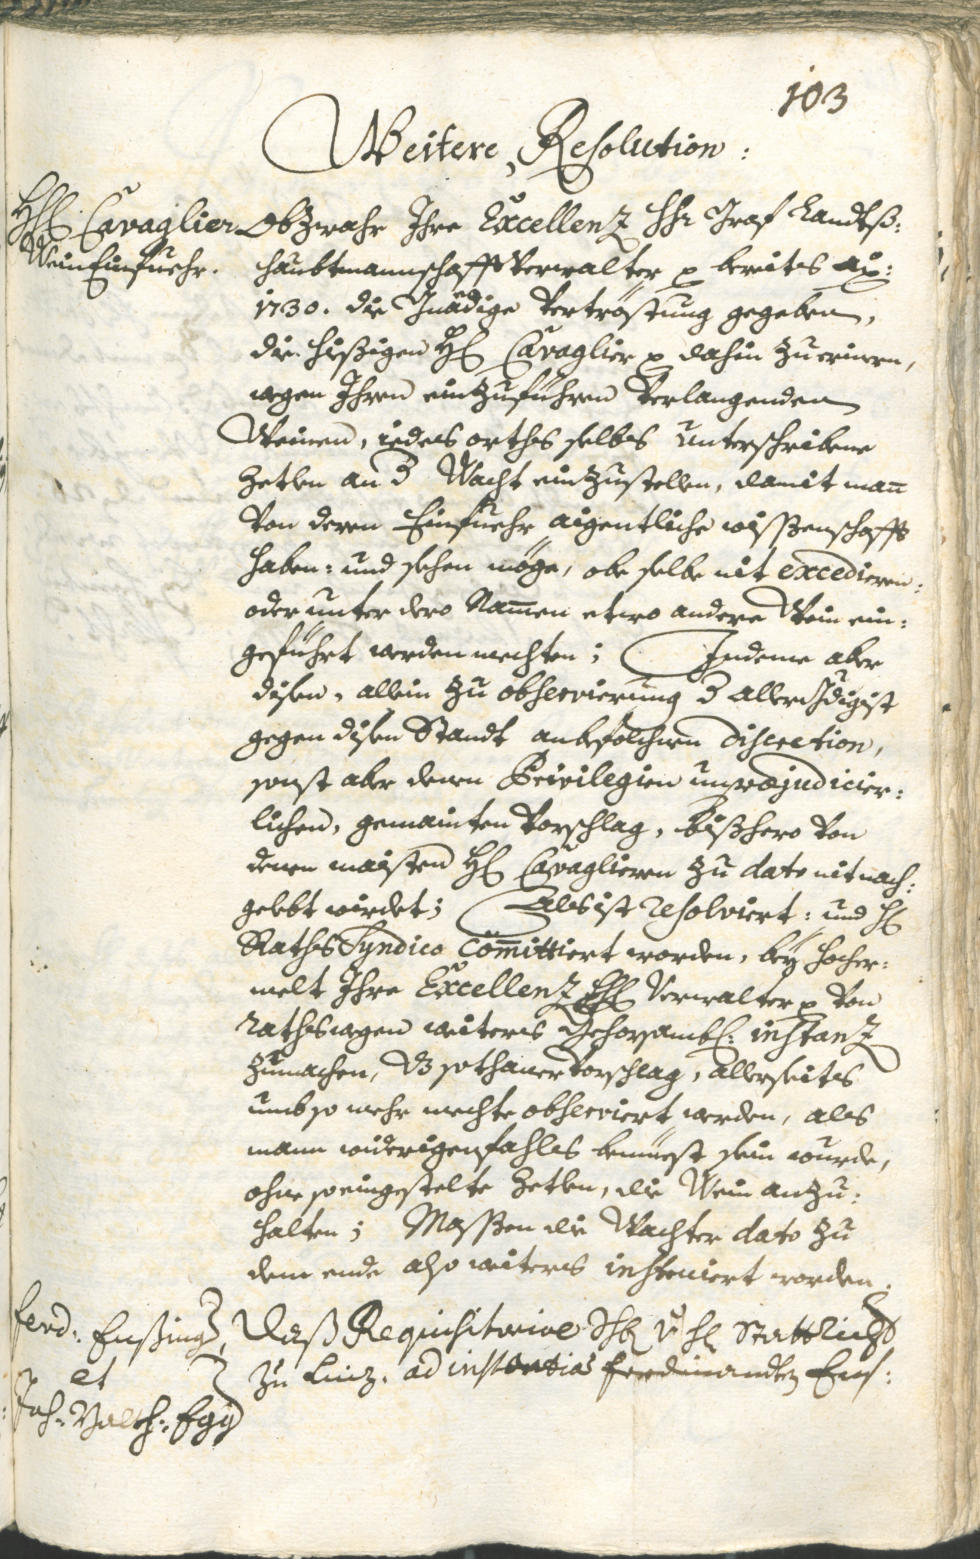 103
Weitere Resolution:
HH: Cavaglier
WeinEinfuehr.
Obzwahr Ihre Excellenz HHr Graf Landts:
haubtmannschafft Verwalter p bereits aõ:
1730. die Gnädige Vertröstung gegeben,
die hießigen HH Cavaglier p dahin zuerinern,
wegen Ihren einzuführen verlangenden
Weinen, iedes orths selbs unterschribene
Zetlen an d Wacht einzustellen, damit mañ
von deren Einfuehr aigentliche wissenschafft
haben: und sehen möge, obe selbe nit excedieren:
oder unter dero Nammen etwo andere Wein ein:
geführt werden mechten; Indeme aber
disen, allein zu observierung d allergdigist
gegen disen Standt anbefolchnen Discretion,
sonst aber denen Privilegien unpræjudicier:
lichen, gemainten Vorschlag, bißhero von
denen maisten HH Cavaglieren zu dato nit nach:
gelebt wirdet; Als ist resolviert: und H
Raths Syndico com̄ittiert worden, bey hocher:
melt Ihre Excellenz HH Verwalter p von
raths wegen weiters Gehorsambl: instanz
zumachen, dz sothaner Vorschlag, allerseits
umb so mehr mechte observiert werden, als
mann widerigenfahls bemüest sein wurde,
ohne so eingestelte Zetlen, die Wein anzu:
halten; Massen die Wachter dato zu
dem ende also weiters instruiert worden.
Ferd: Enßing
et
Joh: Valth: Egg
Daß Requisitorive H v H Stattrich
zu Linz, ad instantias Ferdinandten Ens: